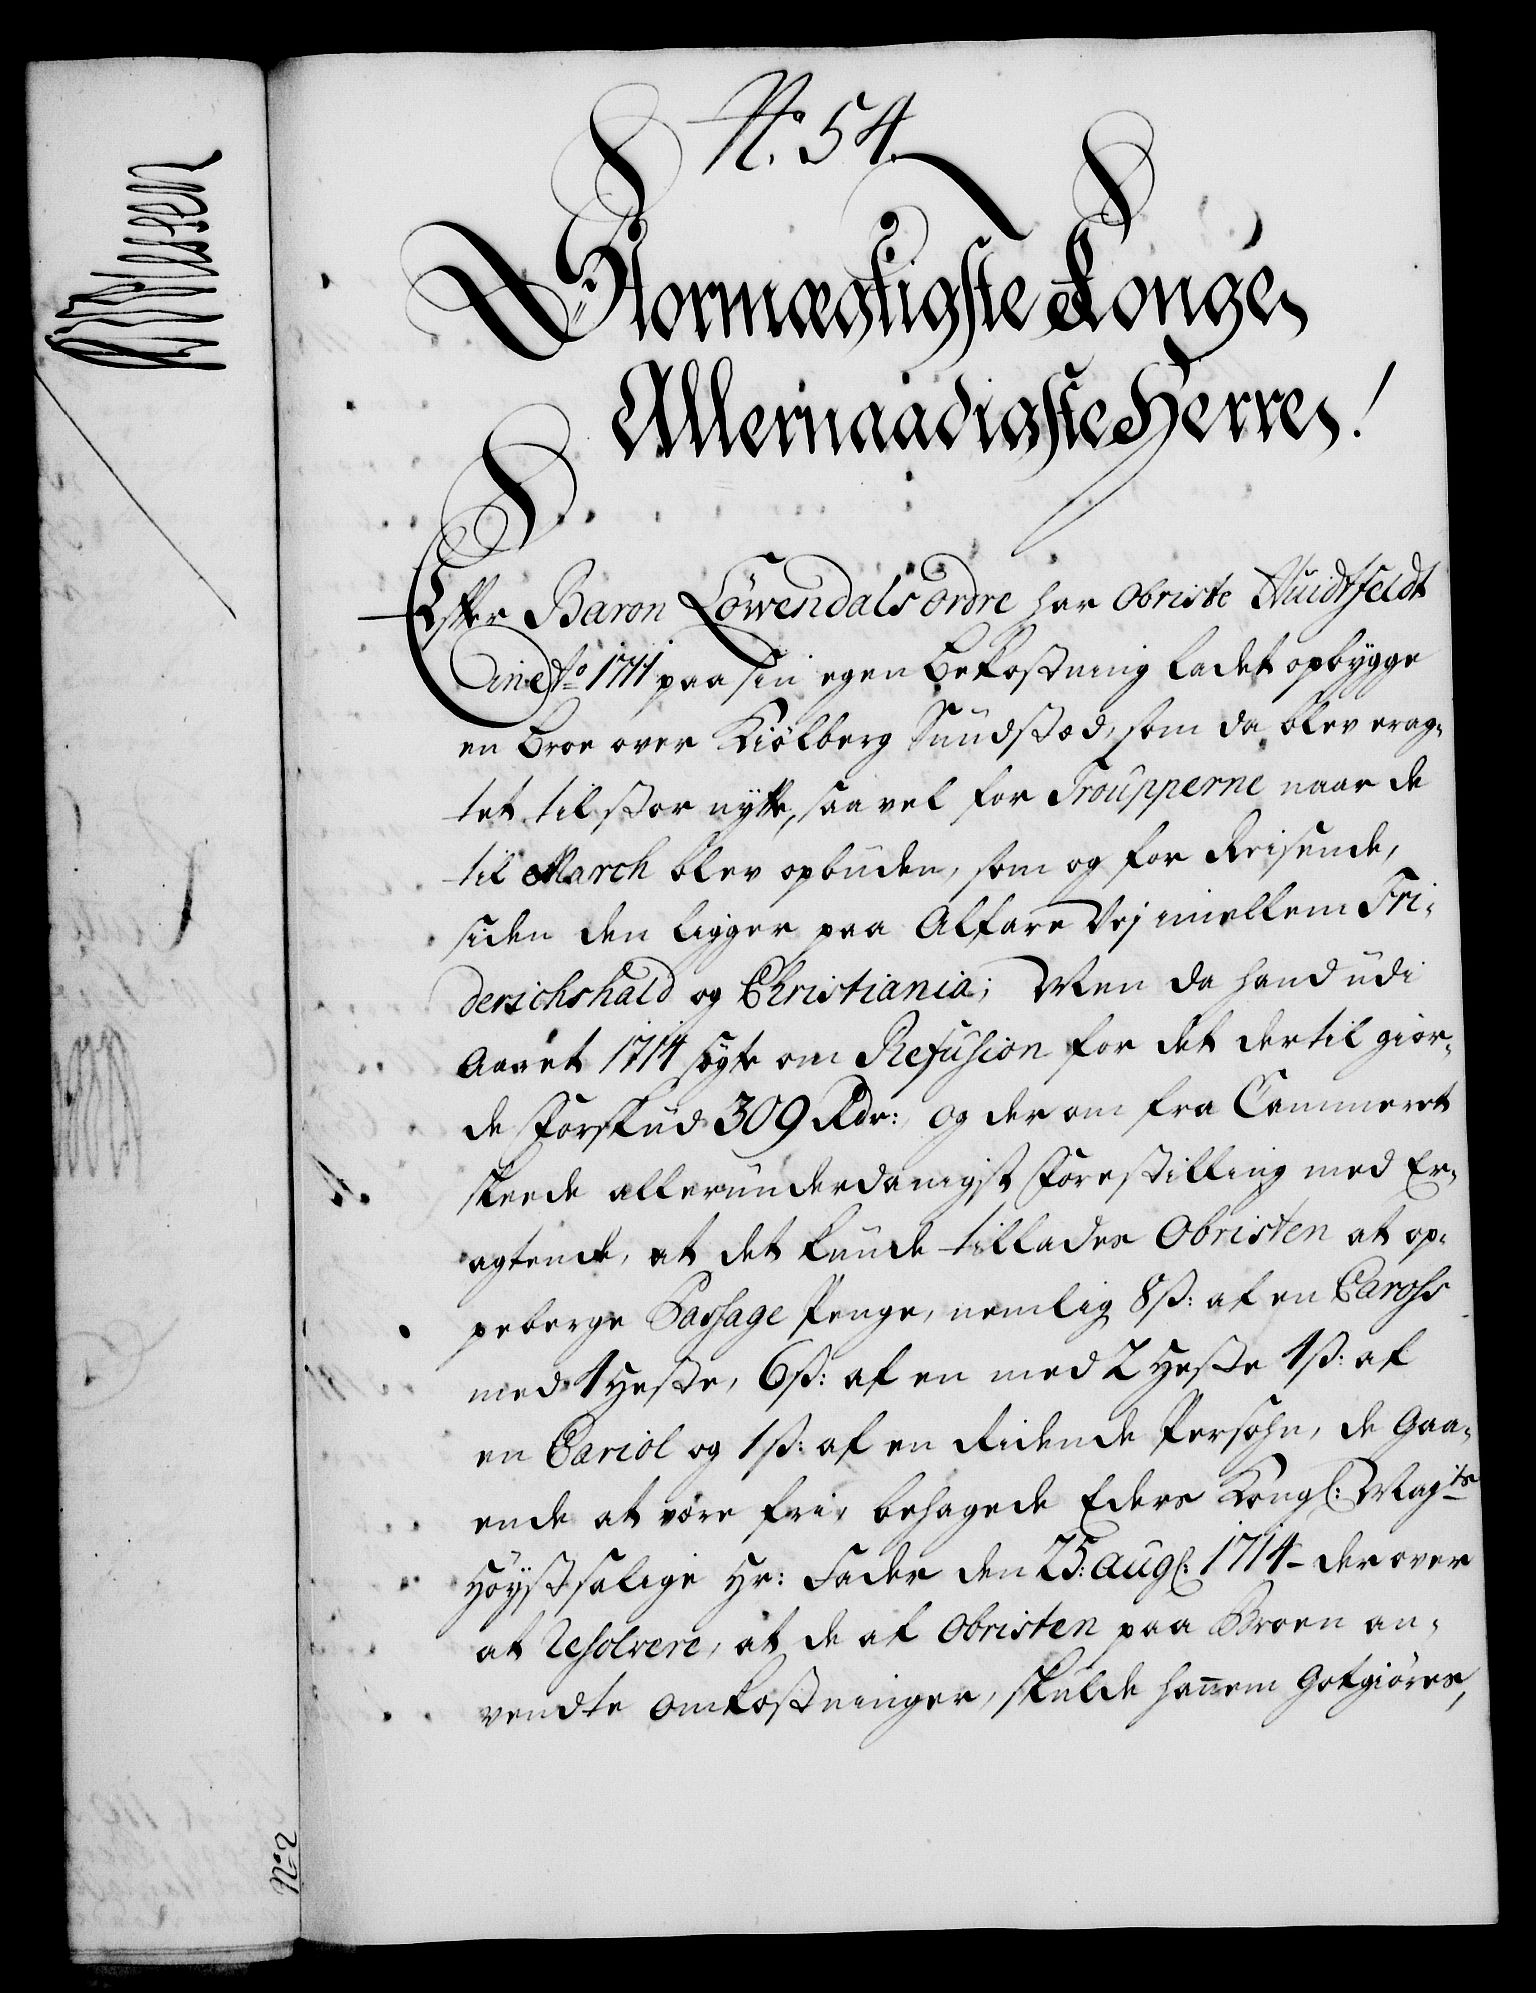 N.º 54.
Stormægtigste Konge,
Allernaadigste Herre!
Efter Baron Löwendals ordre har Obriste Huidtfeldt
in Aº 1711 paa sin egen bekostning ladet opbygge
en broe over Kiölberg Sundsted, som da blev erag-
tet til stor nytte, saavel for Troupperne naar de
til March blev opbuden, som og for Reisende,
siden den ligger paa Alfare Vej imellem Fri-
derichshald og Christiania; Men da hand udi
Aaret 1714 søgte om Refusion for det dertil gior-
de Forskud 309 Rdr: og der om fra Cammeret
skeede allerunderdanigst Forestilling med Er-
agtende, at det kunde tillades Obristen at op-
peberge Passage Penge, nemlig 8 ß: af en Caross
med 4 Heste, 6 ß: af en med 2 Heste 4 ß: af
en Cariol og 1 ß: af en Ridende Persohn, de Gaa-
ende at være frie, behagede Eders Kongl: May.ts
Höystsalige Hr: Fader den 25: Aug: 1714 der over
at Resolvere, at de af Obristen paa Broen an-
vendte Omkostninger, skulde hannem Gotgiöres,
Nº 2